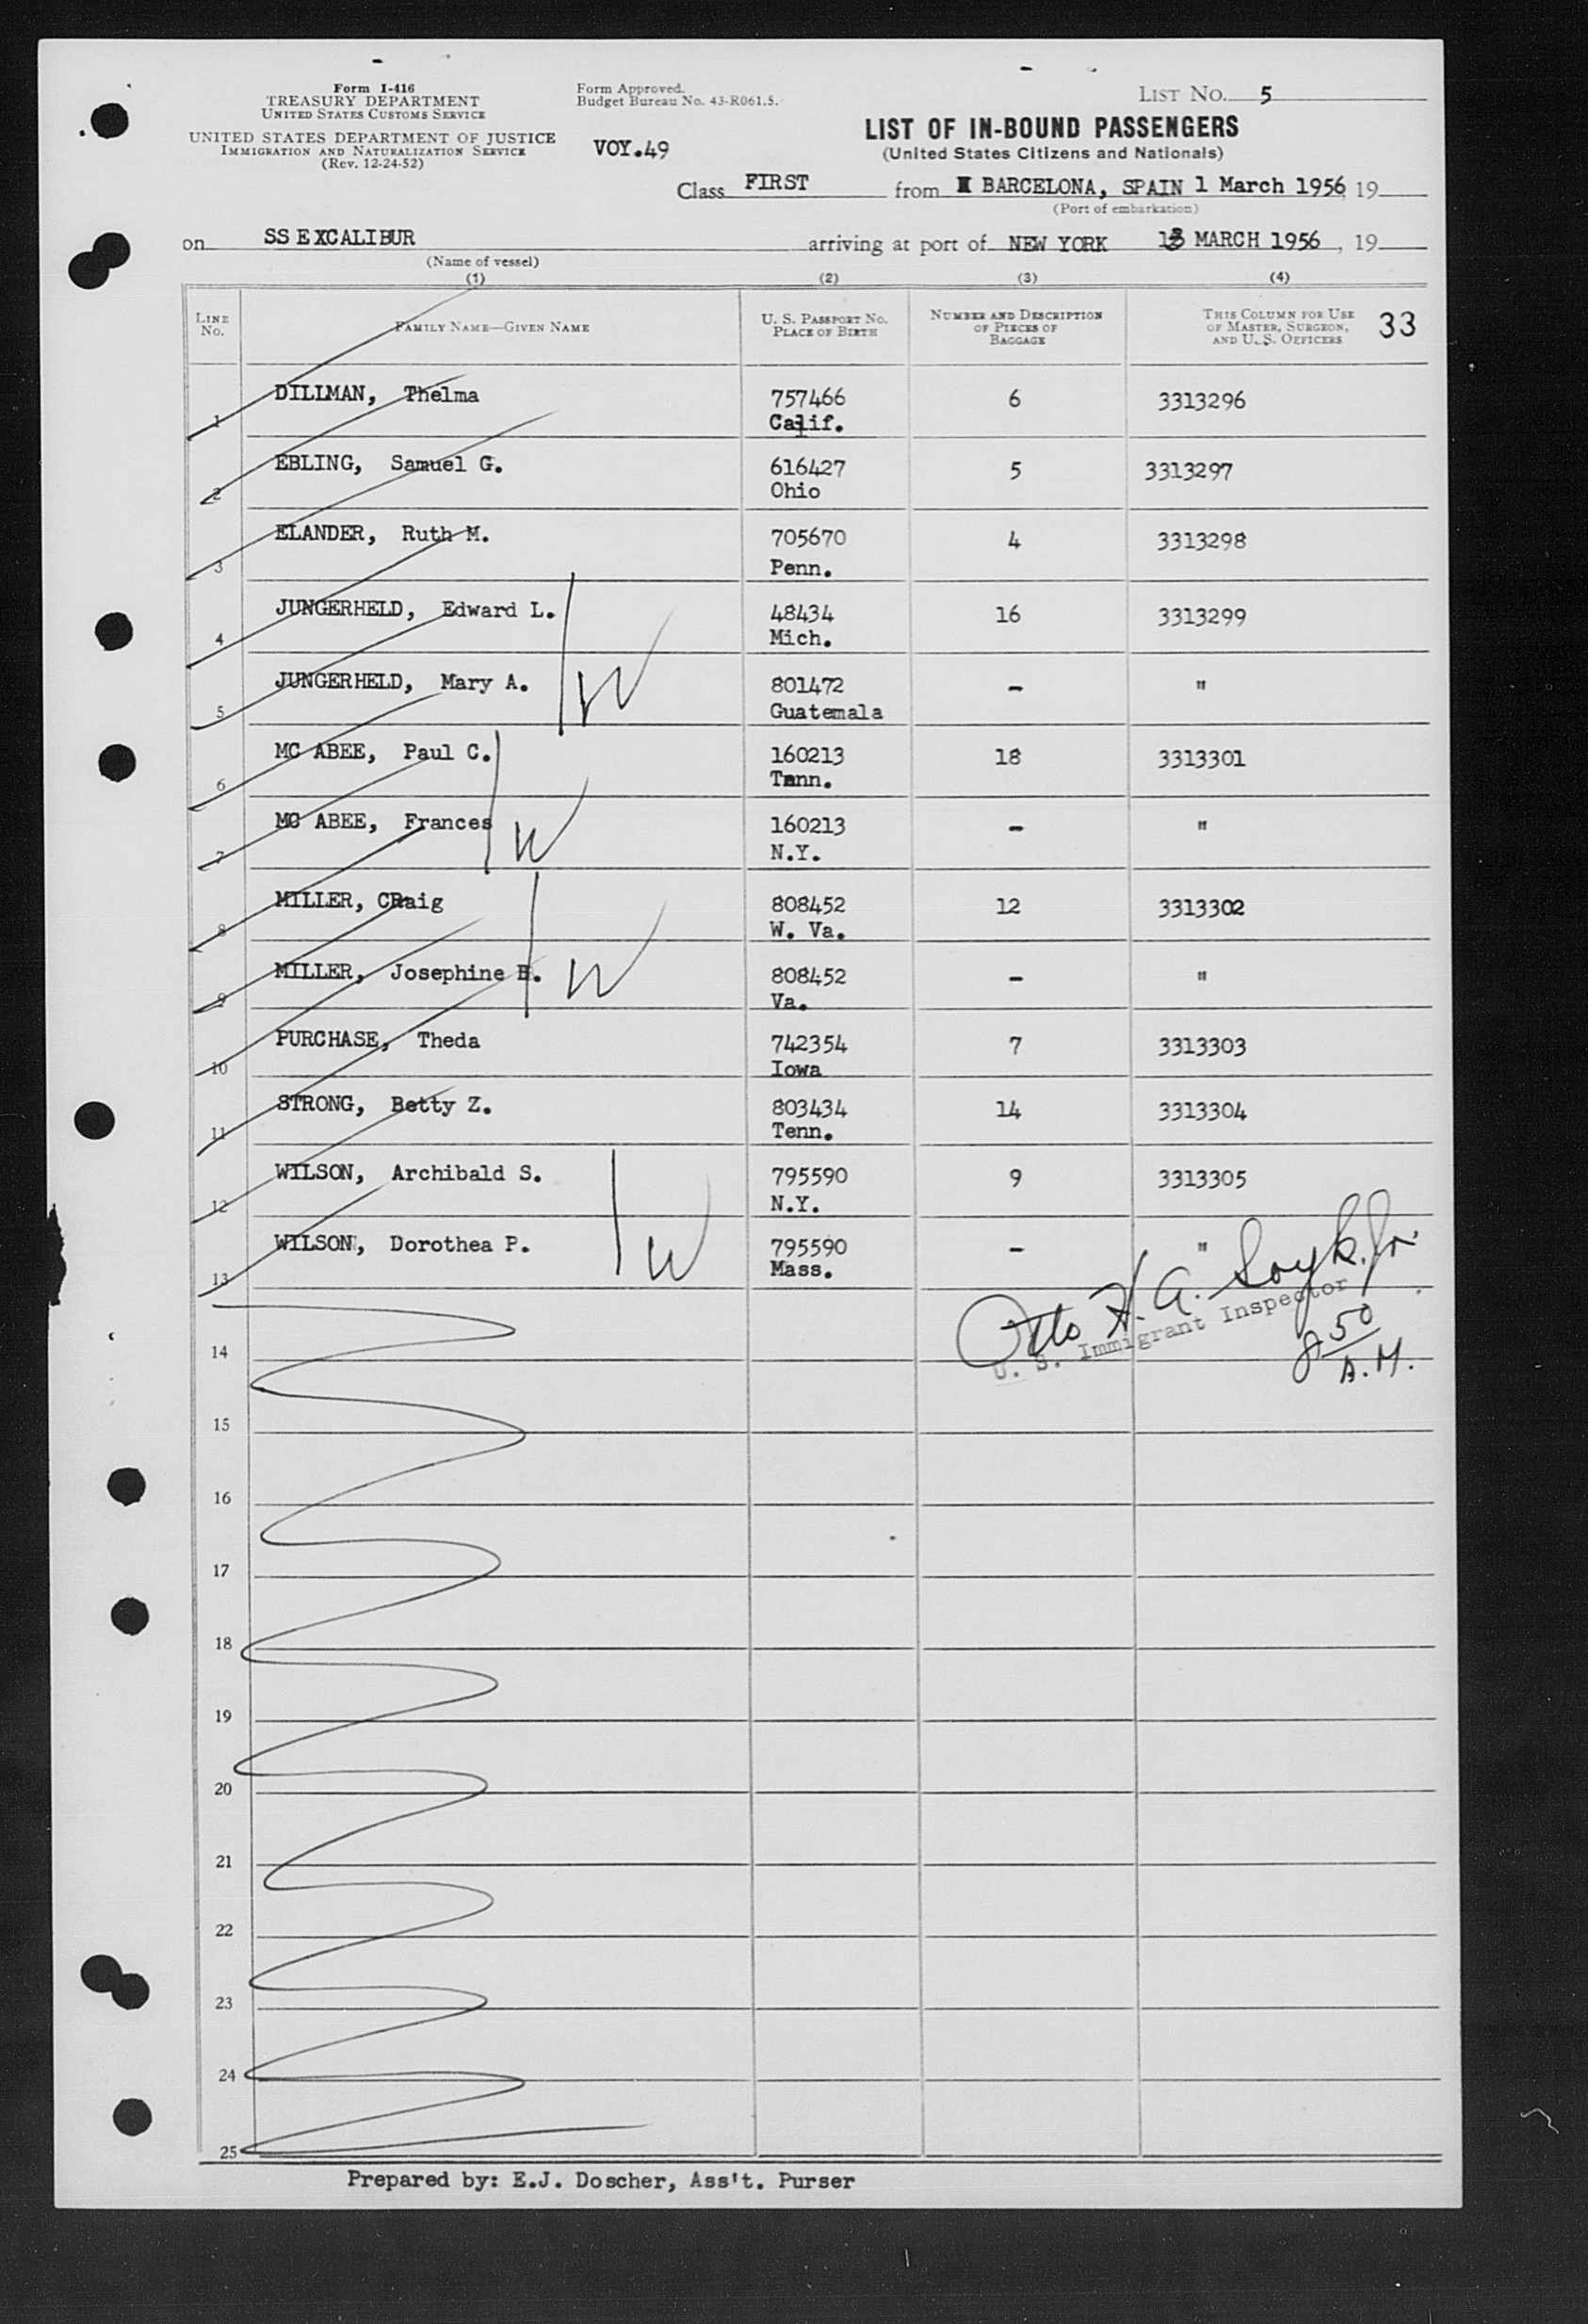 Form I-416
TREASURY DEPARTMENT
UNITED STATES CUSTOMS SERVICE
UNITED STATES DEPARTMENT OF JUSTICE
IMMIGRATION AND NATURALIZATION SERVICE
(Rev. 12-24-52)
Form Approved.
Budget Bureau No. 43-R061.5.
VOY.49
LIST NO. 5
LIST OF IN-BOUND PASSENGERS
(United States Citizens and Nationals)
Class FIRST from BARCELONA, SPAIN 1 March 1956, 19
(Port of embarkation)
on SS EXCALIBUR arriving at port of NEW YORK 13 MARCH 1956, 19
(Name of vessel)
(1) (2) (3) (4)
LINE NO. FAMILY NAME—GIVEN NAME U. S. PASSPORT NO. PLACE OF BIRTH NUMBER AND DESCRIPTION OF PIECES OF BAGGAGE THIS COLUMN FOR USE OF MASTER, SURGEON, AND U. S. OFFICERS 33
1 DILLMAN, Thelma 757466 6 3313296
Calif.
2 EBLING, Samuel G. 616427 5 3313297
Ohio
3 ELANDER, Ruth M. 705670 4 3313298
Penn.
4 JUNGERHELD, Edward L. 48434 16 3313299
Mich.
5 JUNGERHELD, Mary A. W 801472 - "
Guatemala
6 MC ABEE, Paul C. 160213 18 3313301
Tenn.
7 MC ABEE, Frances W 160213 - "
N.Y.
8 MILLER, CRaig 808452 12 3313302
W. Va.
9 MILLER, Josephine B. W 808452 - "
Va.
10 PURCHASE, Theda 742354 7 3313303
Iowa
11 STRONG, Betty Z. 803434 14 3313304
Tenn.
12 WILSON, Archibald S. 795590 9 3313305
N.Y.
13 WILSON, Dorothea P. W 795590 - "
Mass.
Otto H. A. Soyk. Jr.
U. S. Immigrant Inspector
8 50
A.M.
14
15
16
17
18
19
20
21
22
23
24
25
Prepared by: E.J. Doscher, Ass't. Purser